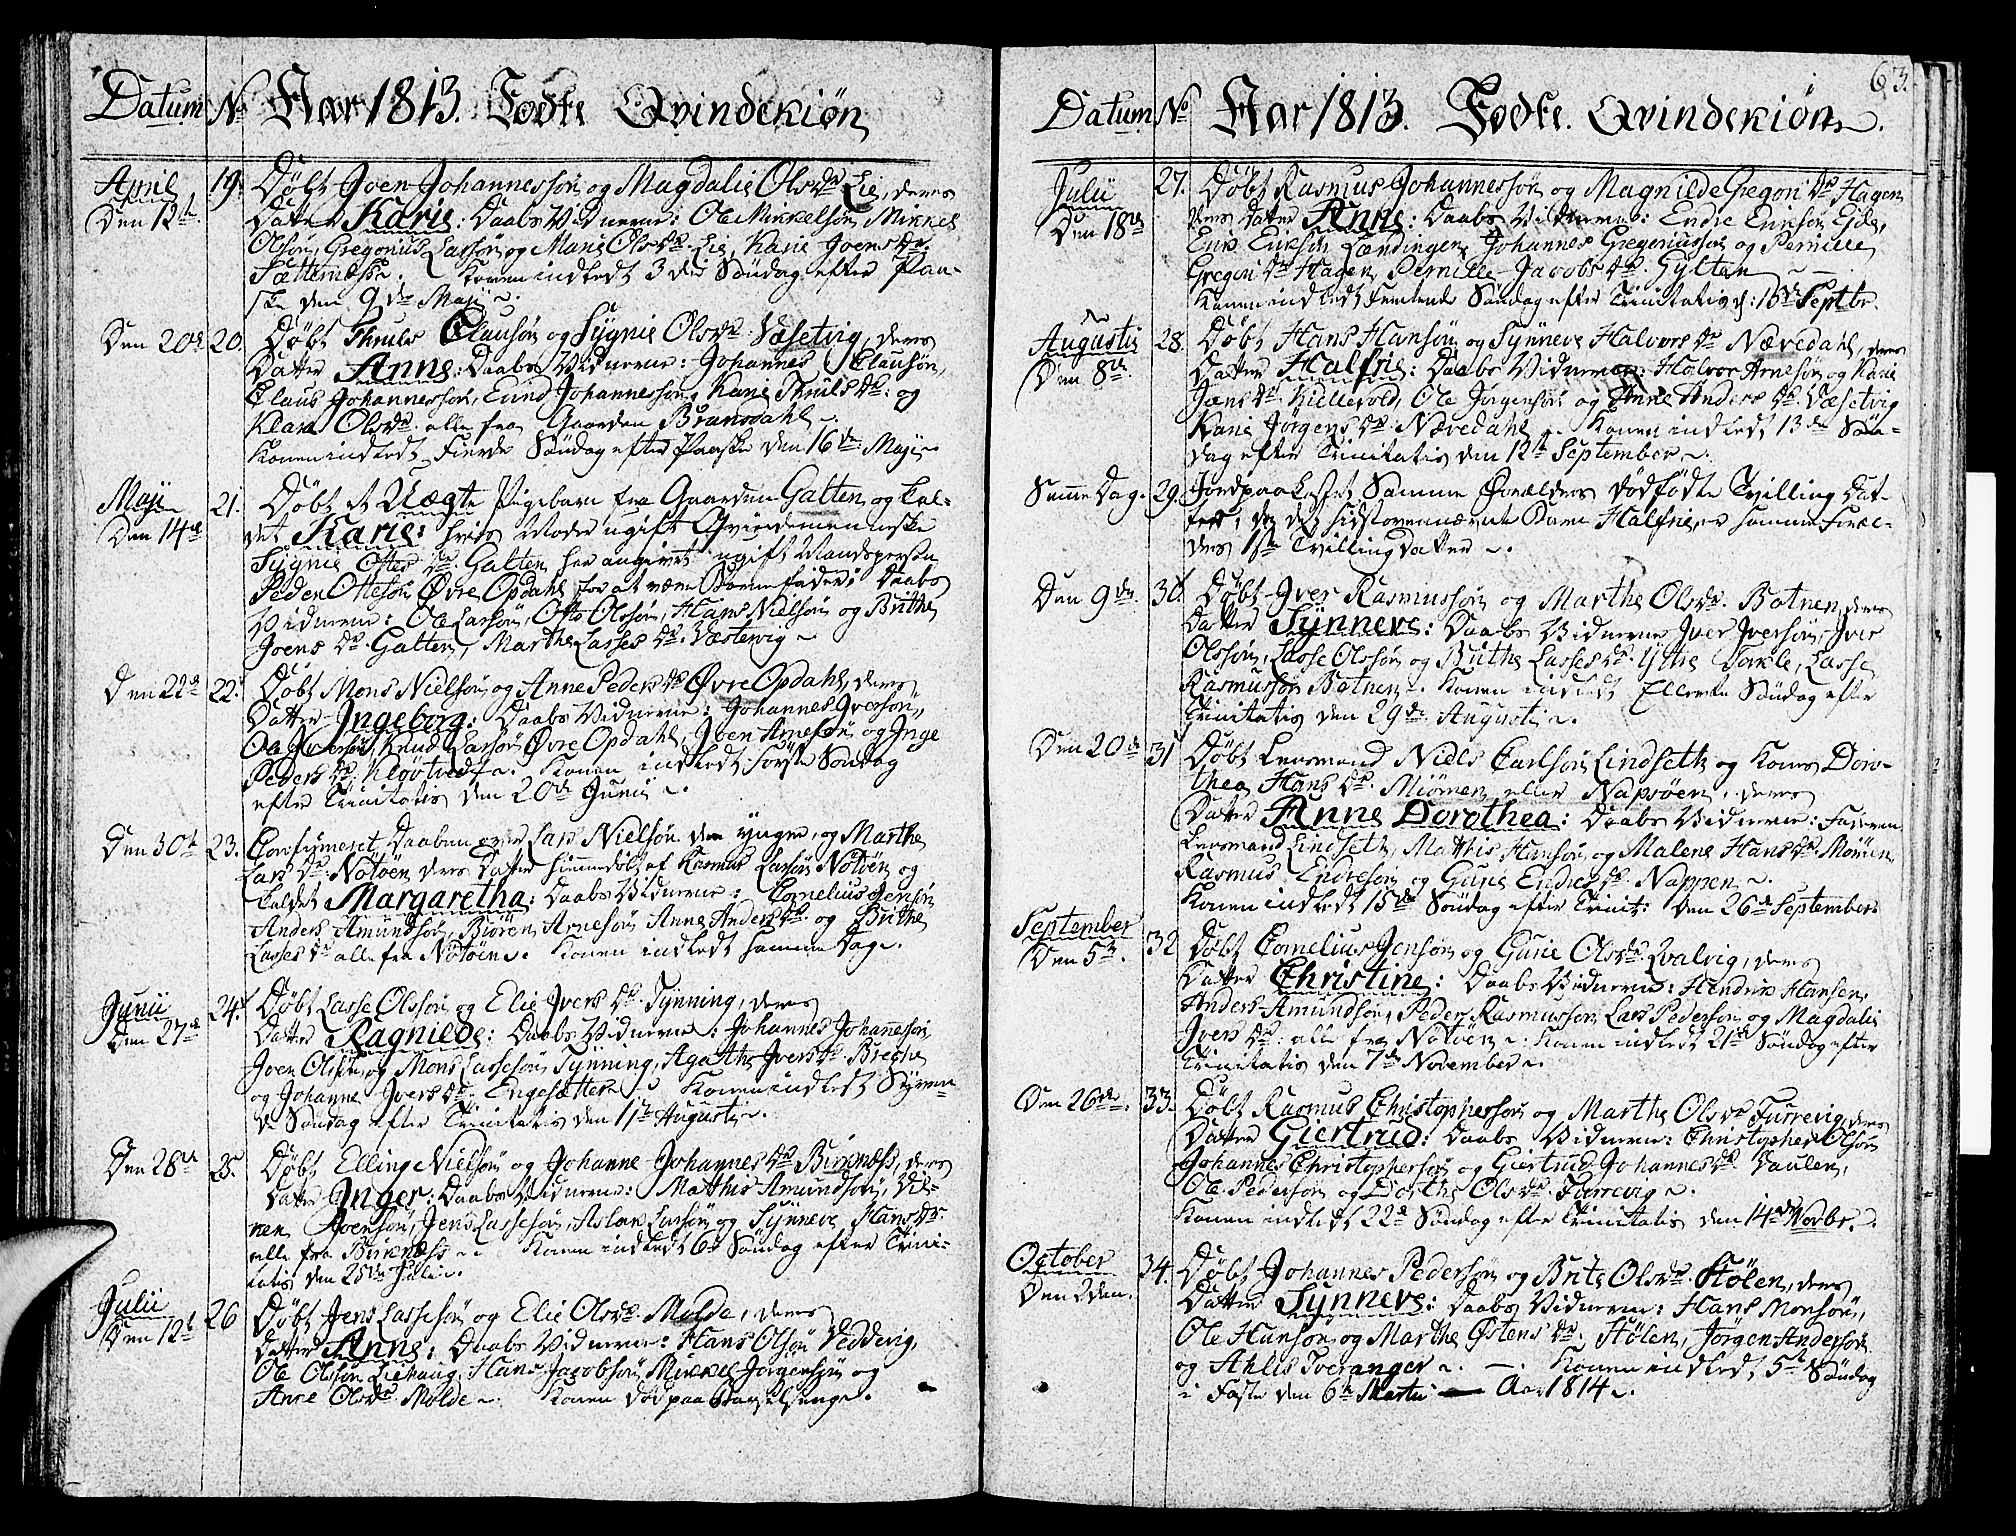 Datum No Aar 1813. Fødte Qvindekiøn
April 19. Døbt Joen Johannessøn og Magdalie Olsdr. Lie, deres
Den 12te Datter Karie: Daabs Vidnerne: Ole Mikkelsøn, Mikkel
Olssøn, Gregorius Larssøn og Marie Olsdr. Lie, Karie Joensdr.
Konen indledt 3die Søndag efter Paa-
ske den 9de Maji.
Den 20de 20. Døbt Thruls Clausøn og Sygnie Olsdr. Væsetvig, deres
Datter Anne: Daabs Vidnerne: Johannes Clausøn,
Claus Johannessøn, Eind Johannessøn, Karie Thrulsdr. og
Klara Olsdr. alle fra Gaarden Bransdahl.
Konen indledt Fierde Søndag efter Paaske den 16de Maji.
Maji 21. Døbt et Uægte Pigebarn fra Gaarden Galten og kal-
Den 14de det Karie: hvis Moder ugift Qvindemenneske
Sygnie Ottesdr. Galten har angivet ugift Mandsperson
Peder Ottesøn Øvre Opdahl for at være Barnefader: Daabs
Vidnerne: Ole Larsøn, Otto Olssøn, Hans Nielsøn og Brithe
Joensdr. Galten, Marthe Lassesdr. Væstevig
Den 22de 22. Døbt Mons Nielsøn og Anne Pedersdr. Øvre Opdahl, deres
Datter Ingeborg: Daabs Vidnerne: Johannes Iversøn,
Ole Iversøn, Knud Larsøn Øvre Opdahl, Joen Arnesøn og Inge
Pedersdr. Kløvtvedt. Konen indledt første Søndag
efter Trinitatis den 20de Junii.
Den 30te 23. Confirmeret Daaben over Lars Nielsøn den yngre, og Marthe
Larsdr. Nótøen deres Datter hiemmedøbt af Rasmus Larsøn Nótøen og
kaldet Margaretha: Daabs Vidnerne: Cornelius Jensøn
Anders Amundsøn, Biøren Arnesøn Anne Andersdr. og Brithe
Lassesdr. alle fra Nótøen. Konen indledt samme Dag.
Junii 24. Døbt Lasse Olssøn og Elie Iversdr. Tynning, deres
Den 27de Datter Ragnilde: Daabs Vidnerne: Johannes Johannessøn
Joen Olssøn og Mons Lassesøn Tynning, Agathe Iversdr. Breche
og Johanne Iversdr. Engesætter. Konen indledt Syven-
de Søndag efter Trinitatis den 1te Augusti.
Den 28de 25. Døbt Elling Nielsøn og Johanne Johannesdr. Birknæss, deres
Datter Inger: Daabs Vidnerne: Matthis Amundsøn,
Joensøn, Jens Lassesøn, Aslak Larsøn og Synneve Hansdr.
alle fra Birknæss. Konen indledt 6te Søndag efter Trini-
tatis den 25de Julii.
Julii 26 Døbt Jens Lassesøn og Elie Olsdr. Molde, deres
Den 12te Datter Anne: Daabs Vidnerne: Hans Olsøn Veddevig,
Ole Olssøn Liehaug, Hans Jacobsøn, Mikkel Jørgensøn og
Anne Olsdr. Molde. Konen død paa Barselseng.
63.
Datum No Aar 1813. Fødte Qvindekiøn.
Julii 27. Døbt Rasmus Johannessøn og Magnilde Gregoridr. Hagen
Den 18de deres Datter Anne: Daabs Vidnerne: Endre Eriksøn Eide,
Erik Eriksøn Lændingen, Johannes Gregoriussøn og Pernille
Gregoridr. Hagen, Pernille Jacobsdr. Gyltan
Konen indledt Femtende Søndag efter Trinitatis d: 16de Septbr.
Augusti 28. Døbt Hans Hansøn og Synneve Halvorsdr. Nævedahl, deres
Den 8de. Datter Halfrie: Daabs Vidnerne: Halvor Arnesøn og Karie
Jensdr. Kiellevold, Ole Jørgensøn og Anne Andersdr. Væsetvig
Karie Jørgensdr. Nævedahl. Konen indledt 13de Søn-
dag efter Trinitatis den 12te September.
Samme Dag. 29. Jordpaakastet Samme Forældres dødfødte Tvilling Dat-
ter, da det sidstovennævnte Barn Halfrie, er samme Foræl-
dres 1ste Tvilling datter.
Den 9de. 30. Døbt Iver Rasmussøn og Marthe Olsdr. Botnen, deres
Datter Synneve: Daabs Vidnerne Iver Iversøn, Iver
Olssøn, Lasse Olssøn og Brithe Lassesdr. Yttre Torkle, Lasse
Rasmussøn Botnen. Konen indledt Ellevte Søndag efter
Trinitatis den 29de Augusti.
Den 20de 31 Døbt Lensmand Niels Carlsøn Lindseth og Kones Doro-
thea Hansdr. Miømen eller Napsøen, deres
Datter Anne Dorothea: Daabs Vidnerne: Faderen
Lensmand Lindseth, Matthis Hansøn og Malene Hansdr. Momen
Rasmus Endresøn og Gurie Endresdr. Nappen.
Konen indledt 15de Søndag efter Trinit: den 26de September
September 32 Døbt Cornelius Jensøn og Gurie Olsdr. Qvalvig, deres
Den 5te. Datter Christine: Daabs Vidnerne: Hendrik Hansen,
Anders Amundsøn, Peder Rasmussøn, Lars Pedersøn og Magdalie
Iversdr. alle fra Nótøen. Konen indledt 21de Søndag efter
Trinitatis den 7de November.
Den 26de. 33. Døbt Rasmus Christophersøn og Marthe Olsdr. Furrevig, deres
Datter Giertrud: Daabs Vidnerne: Christopher Olsøn
Johannes Christophersøn og Giertrud Johannesdr. Daulen,
Ole Pedersøn og Dorthe Olsdr. Furrevig.
Konen indledt 22de Søndag efter Trinitatis den 14de Novbr.
October 34. Døbt Johannes Pedersøn og Brite Olsdr. Stølen, deres
Den 3den. Datter Synneve: Daabs Vidnerne: Hans Monsøn,
Ole Hansøn og Marthe Østensdr. Stølen, Jørgen Andersøn
og Ahlis Tveranger. Konen indledt 5te Søndag
i Faste den 6te Martii Aar 1814.